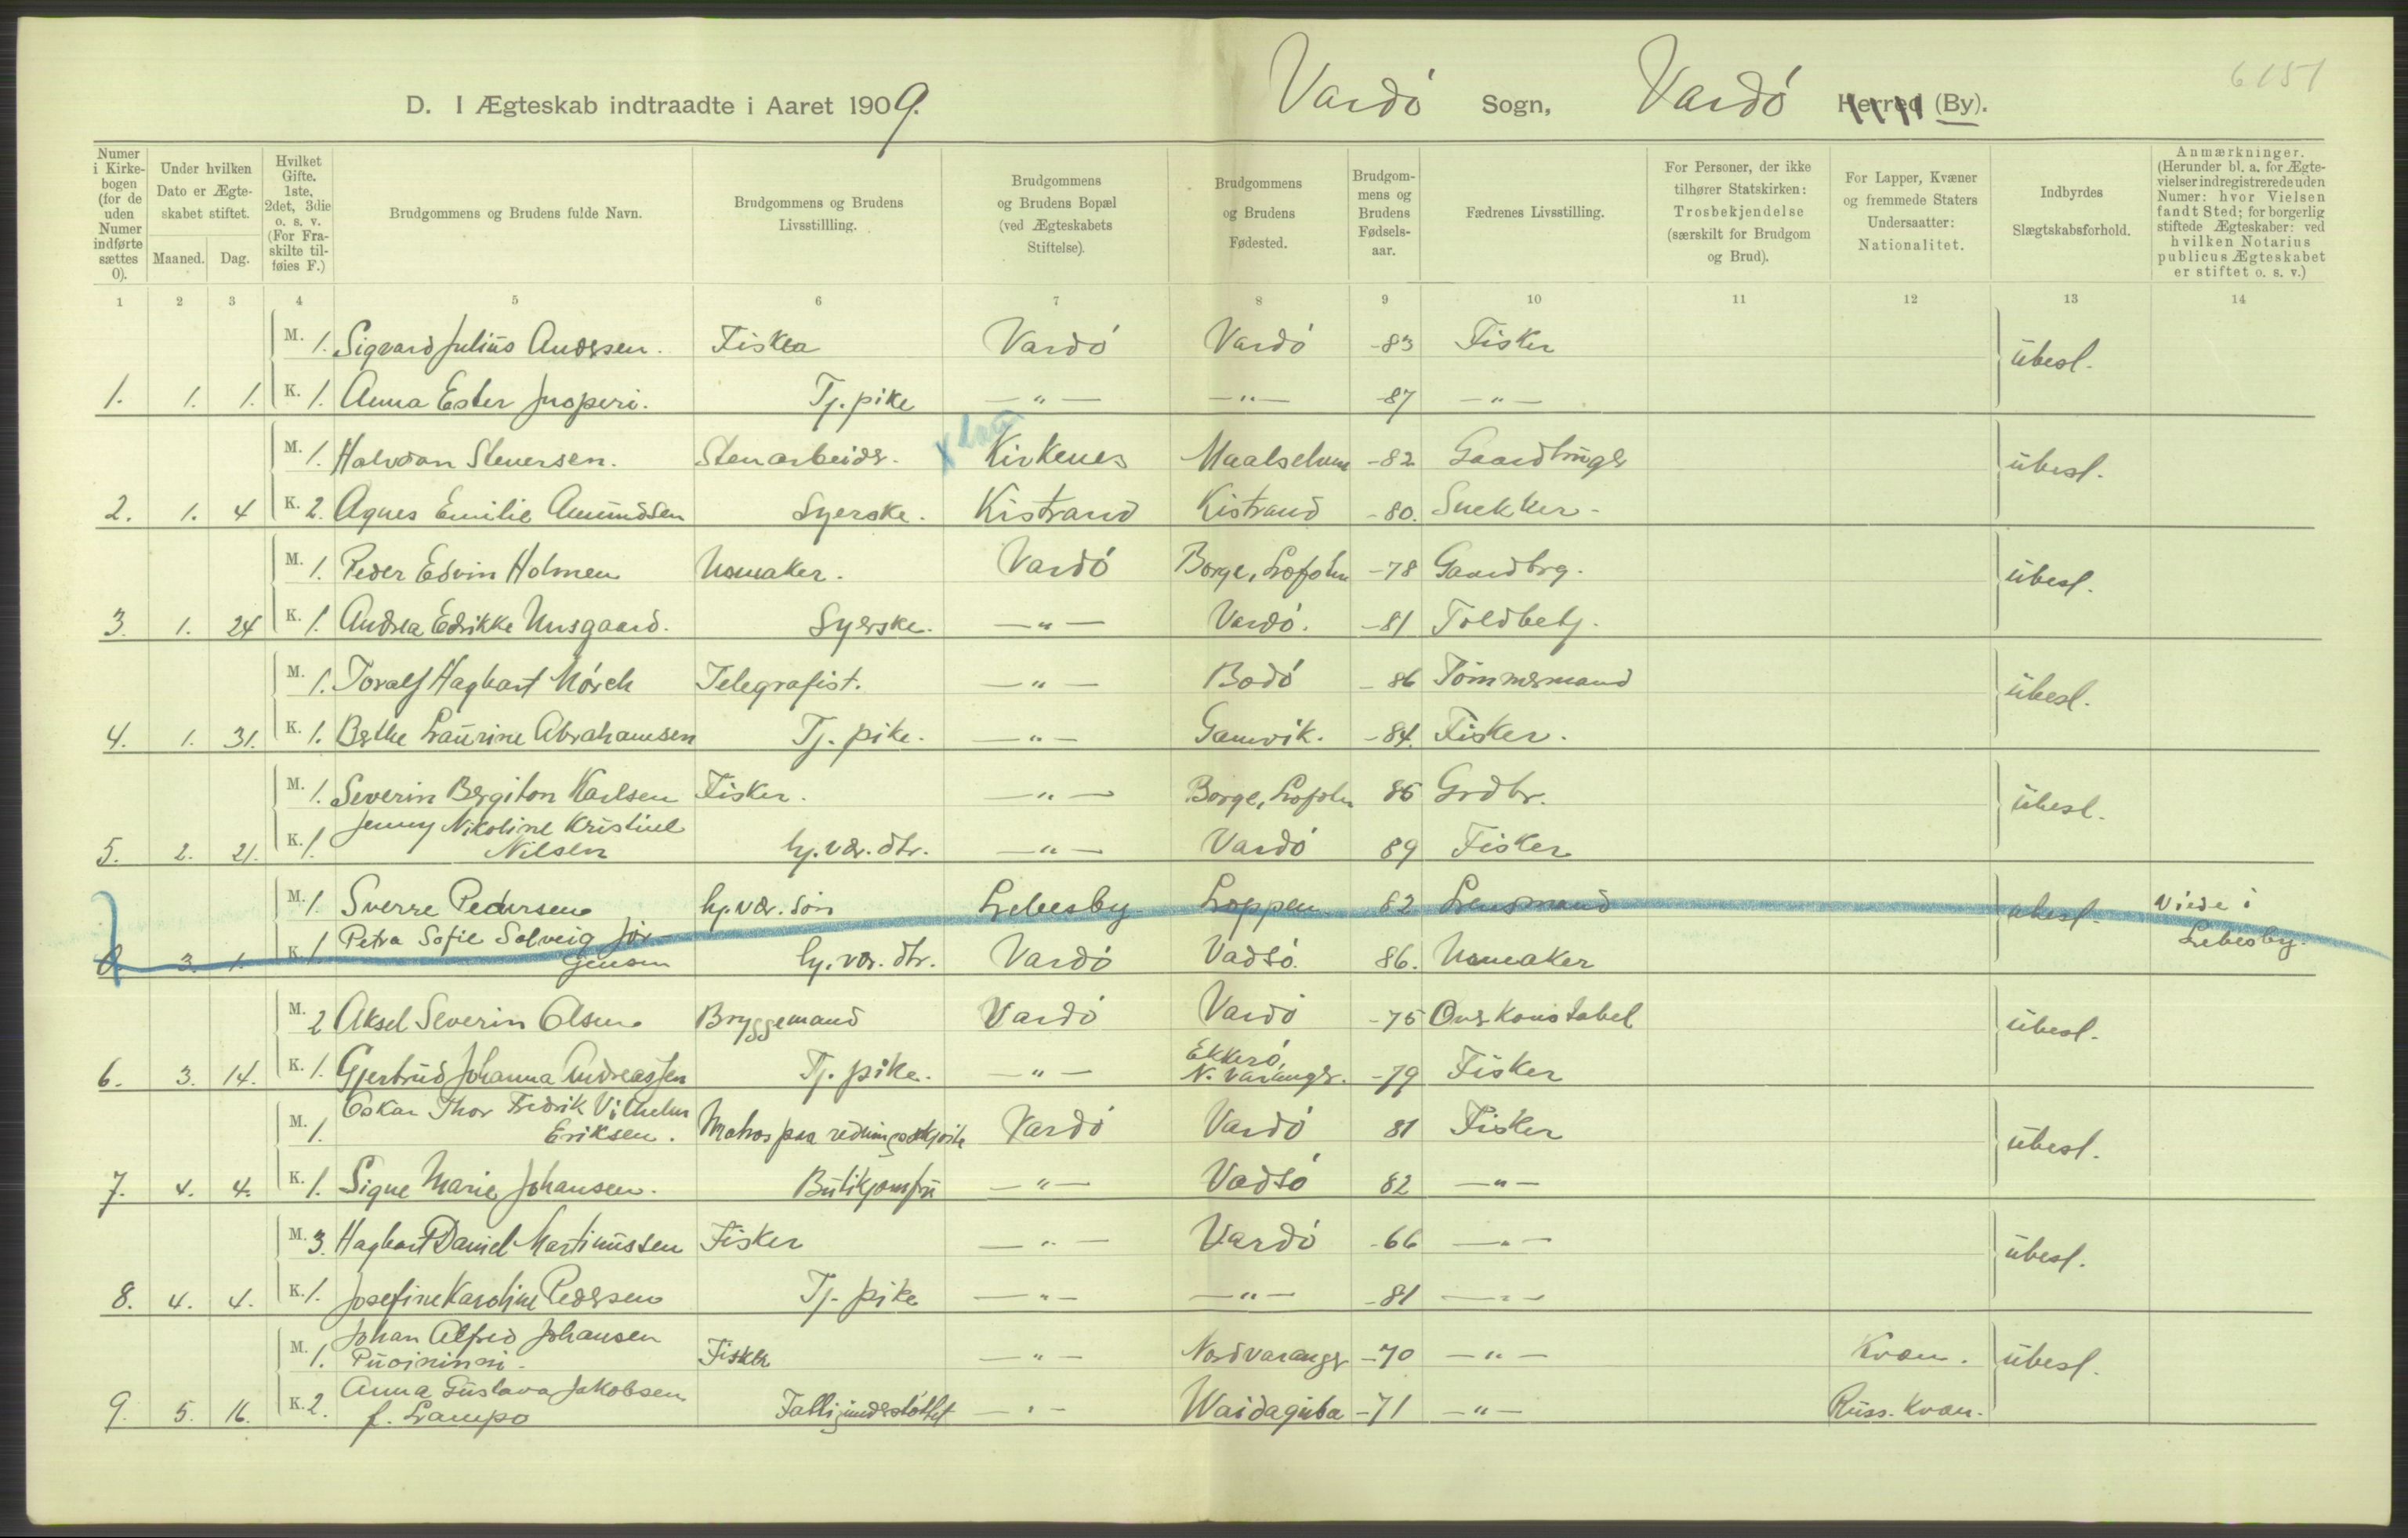 6151
D. I Ægteskab indtraadte i Aaret 1909. Vardö Sogn, Vardö Herred (By).
Numer i Kirkebogen (for de uden Numer indførte sættes 0).
Under hvilken Dato er Ægteskabet stiftet.
Maaned. Dag.
Hvilket Gifte. 1ste, 2det, 3die o. s. v. (For Fraskilte tilføies F.)
Brudgommens og Brudens fulde Navn.
Brudgommens og Brudens Livsstillling.
Brudgommens og Brudens Bopæl (ved Ægteskabets Stiftelse).
Brudgommens og Brudens Fødested.
Brudgommens og Brudens Fødselsaar.
Fædrenes Livsstilling.
For Personer, der ikke tilhører Statskirken: Trosbekjendelse (særskilt for Brudgom og Brud).
For Lapper, Kvæner og fremmede Staters Undersaatter: Nationalitet.
Indbyrdes Slægtskabsforhold.
Anmærkninger. (Herunder bl. a. for Ægtevielser indregistrerede uden Numer: hvor Vielsen fandt Sted; for borgerlig stiftede Ægteskaber: ved hvilken Notarius publicus Ægteskabet er stiftet o. s. v.)
1 2 3 4 5 6 7 8 9 10 11 12 13 14
M. 1. Sigvard Julius Andersen. Fisker Vardö Vardö -83 Fisker ubesl.
1. 1. 1. K. 1. Anna Ester Juoperi. Tj. pike —"— —"— -87 —"—
M. 1. Halvdan Steversen. Stenarbeider. Kirkenes Maalselven -82 Gaardbruger ubesl.
2. 1. 4 K. 2. Agnes Emilie Amundsen Syerske. Kistrand Kistrand -80. Snekker.
M. 1. Peder Edvin Holmen Urmaker. Vardö Borge, Lofoten -78 Gaardbrg. ubesl.
3. 1. 24 K. 1. Andrea Edrikke Ursgaard. Syerske. —"— Vardö. -81 Toldbetj.
M. 1. Toralf Hagbart Mörch Telegrafist. —"— Bodö -86 Tömmermand ubesl.
4. 1. 31. K. 1. Berthe Laurine Abrahamsen Tj. pike. —"— Gamvik. -84. Fisker.
M. 1. Severin Bergiton Karlsen Fisker. —"— Borge, Lofoten 86 Grdbr. ubesl.
Jenny Nikoline Kristine
5. 2. 21. K. 1. Nilsen hj.vær. dtr. —"— Vardö 89 Fisker
M. 1. Sverre Pedersen hj.vær. sön Lebesby Loppen 82 Lensmand ubesl. Viede i
K. 1. Petra Sofie Solveig Jör- Lebesby.
0 3. 1. gensen hj. vær. dtr. Vardö Vadsö. 86. Urmaker
M. 2 Aksel Severin Olsen Bryggemand Vardö Vardö -75 Overkonstabel ubesl.
Ekkerö,
6. 3. 14. K. 1. Gjertrud Johanna Andreassen Tj. pike. —"— N. Varanger. -79 Fisker
Oskar Thor Fredrik Vilhelm
M. 1. Eriksen. Matros paa redningsskjöite Vardö Vardö 81 Fisker ubesl.
7. 4. 4. K. 1. Signe Marie Johansen. Butikjomfru —"— Vadsö 82 —"—
M. 3. Hagbart Daniel Martinussen Fisker —"— Vardö -66 —"— ubesl.
8. 4. 4. K. 1. Josefine Karoline Pedersen Tj. pike —"— —"— -81 —"—
Johan Alfred Johansen
M. 1. Puoininni. Fisker —"— Nordvaranger -70 —"— Kvæn. ubesl.
Anna Gustava Jakobsen
9. 5. 16. K. 2. f. Lampo Fattigunderstöttet —"— Waidaguba -71 —"— Russ. Kvæn.